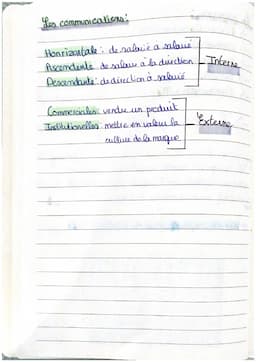 Les communications :
Horrizontale : de salarié a salarié
Ascendante : de salarié à la direction
Descendante : de direction à salarié
Interne
Commerciales : vendre un produit
Institutionnelles : mettre en valeur la
culture de la marque
Externe